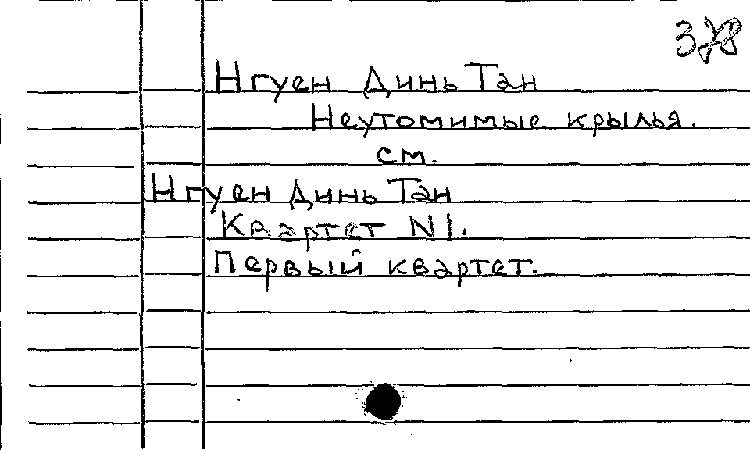 378
Нгуен Динь Тан
Неутомимые крылья.
см.
Нгуен Динь Тан
Квартет N1.
Первый квартет.